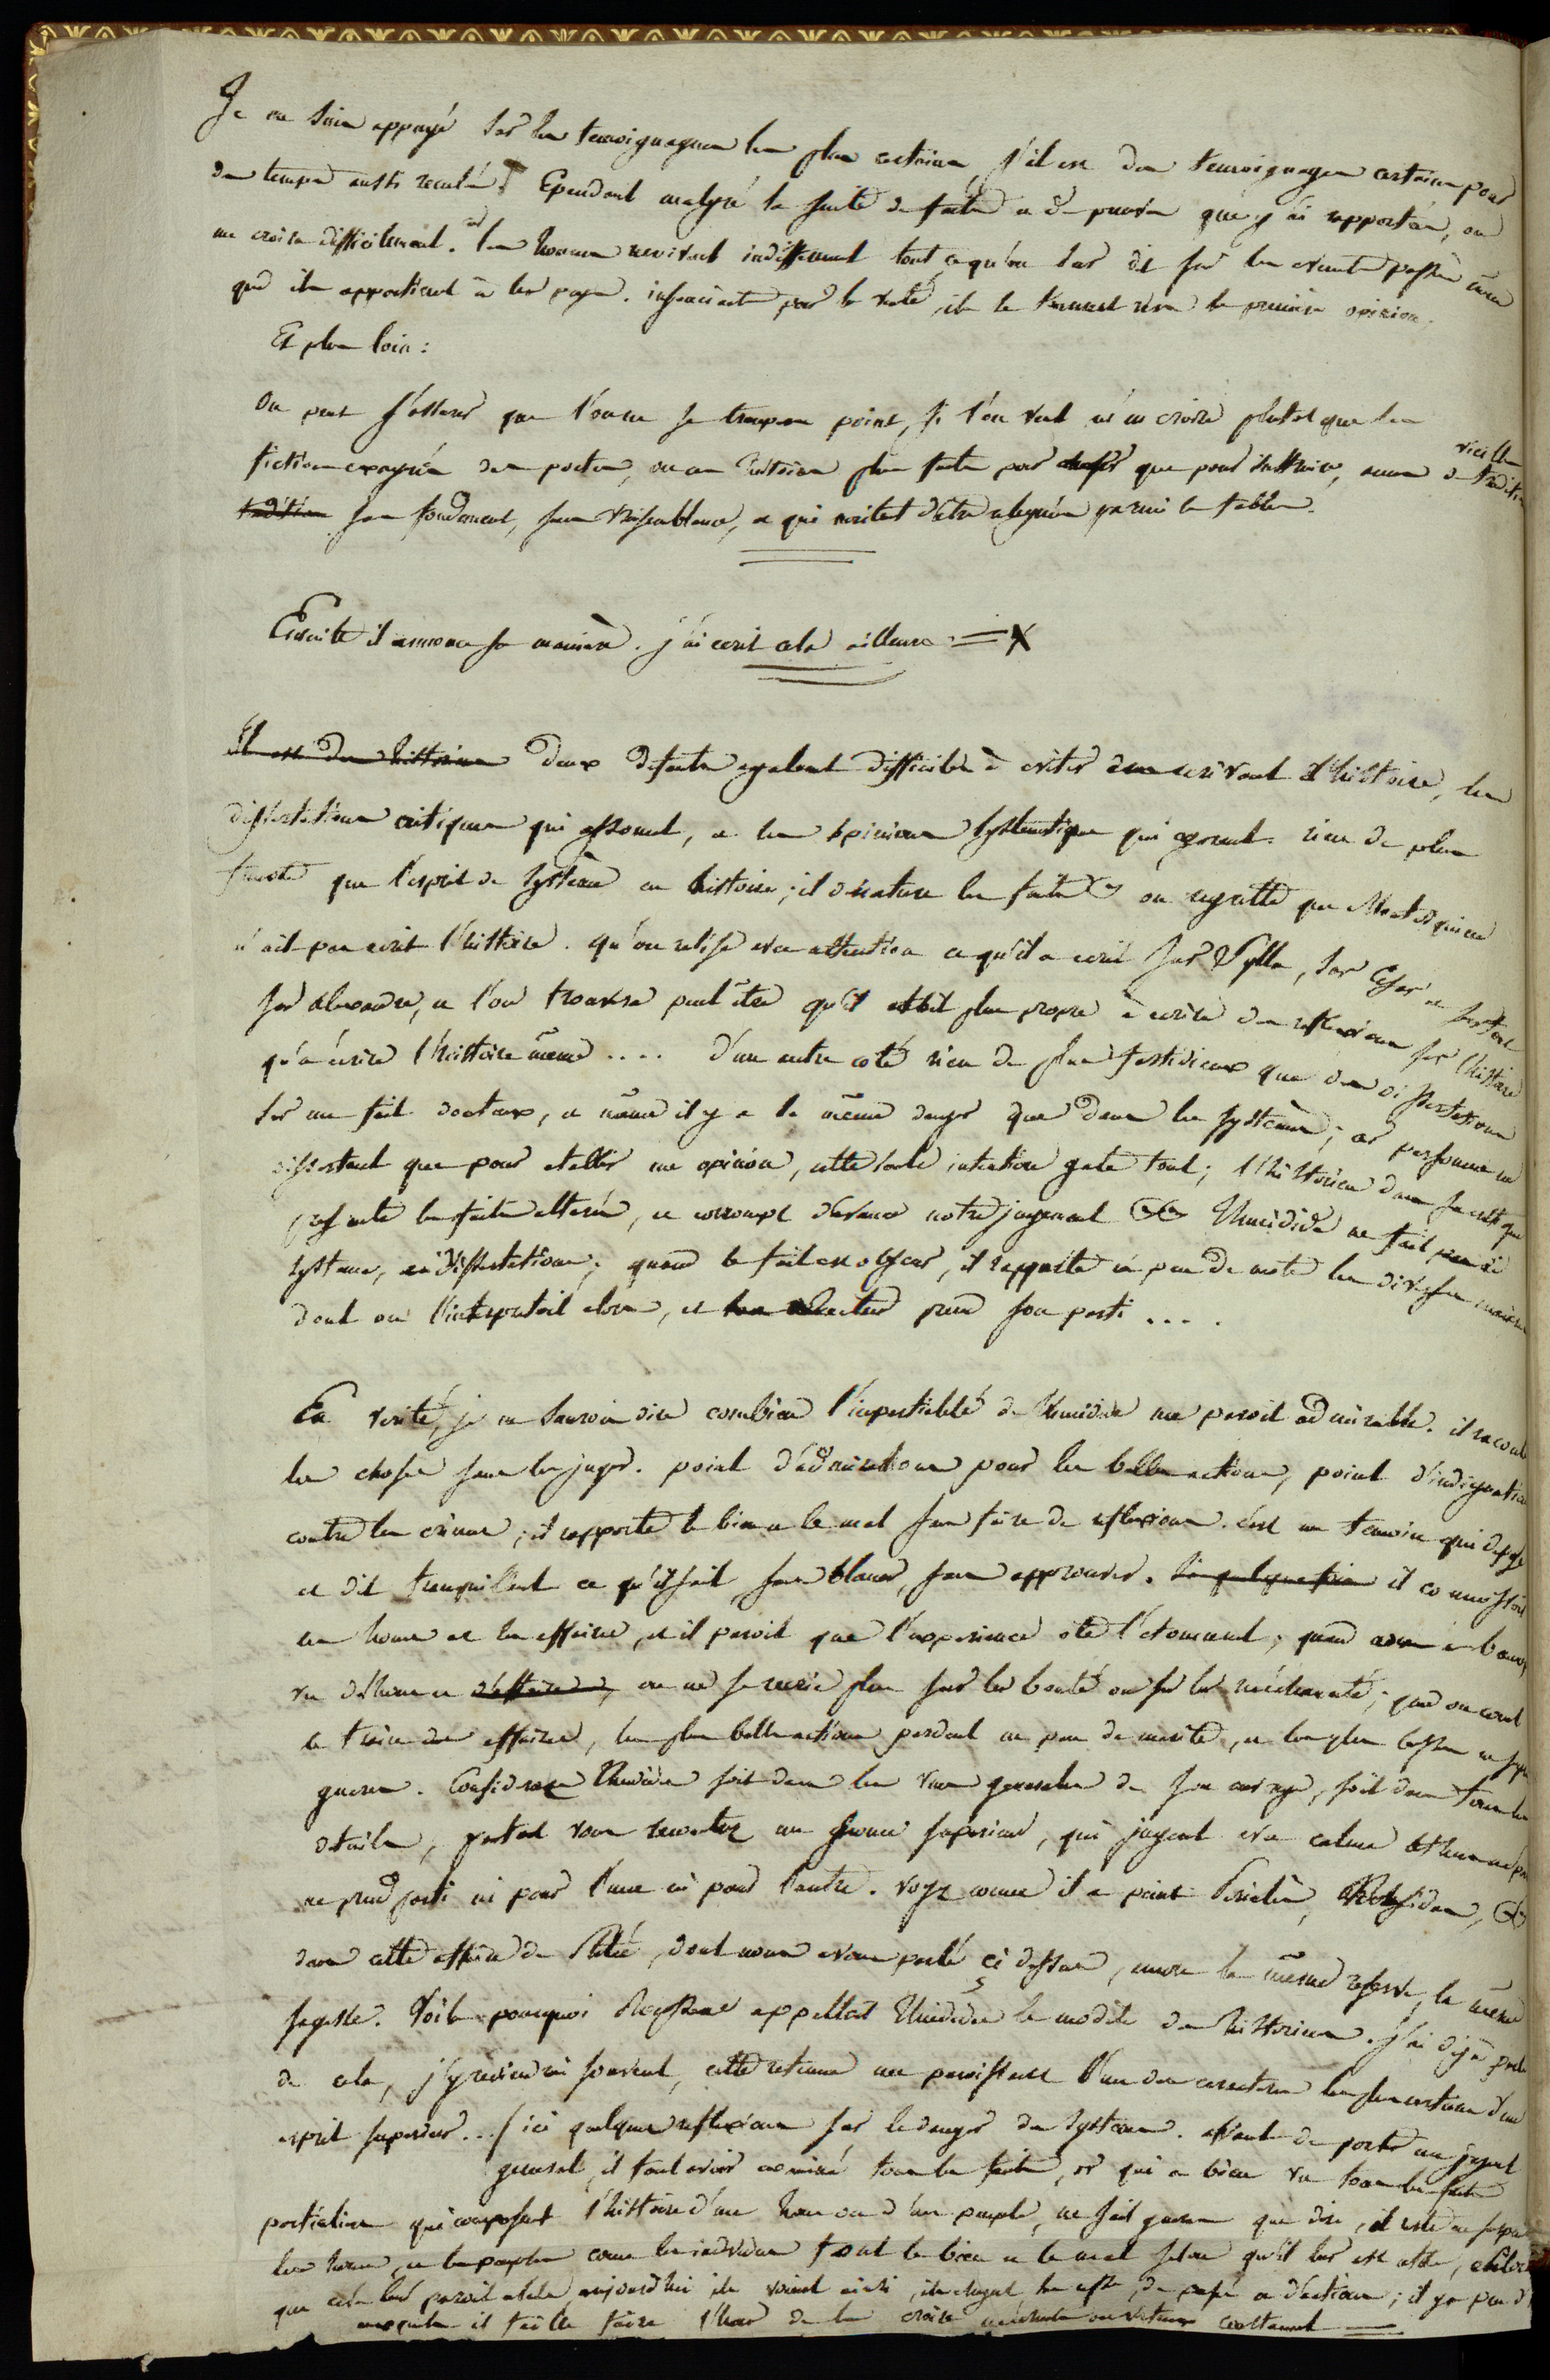 Je me suis appuyé sur les temoignages les plus certains, s'il est des temoignages certains pour
des temps aussi reculés. Cependant malgré la suite de faits et de preuves que j'ai rapportés, on
me croira difficilement. car les hommes reçoivent indifferement tout ce qu'on leur dit sur les evenemts passés meme
quand ils appartienent à leur pays. insouciants pour la verité, ils se tiennent à la premiere opinion.
Et plus loin:
on peut s'assurer que l'on ne se trompera point, si l'on veut m'en croire plutot que les
fictions exagerées des poetes, ou ces histoires plus faites pour amuser que pour instruire, ramas de vieilles traditions
tradition sans fondement, sans vraisemblance, et qui meritent d'être releguées parmi les fables.
Ensuite il annonce sa maniere. j'ai ecrit cela ailleurs = X
Il est deux historiens Deux defauts egalement difficiles à eviter en ecrivant l'histoire, les
dissertations critiques qui assomment, et les opinions systematiques qui egarent. rien de plus
funeste que l'esprit de systême en histoire; il dénature les faits on regrette que Montesquieu
n'ait pas ecrit l'histoire. qu'on relise avec attention ce qu'il a ecrit sur Sylla, sur Cesar et surtout
sur alexandre, et l'on trouvera peut être qu'il etoit plus propre à ecrire des reflexions sur l'histoire
qu'à écrire l'histoire même .... d'un autre coté rien de plus fastidieux que des dissertations
sur un fait douteux, et même il y a le même danger que dans les systêmes; car personne ne
dissertant que pour etablir une opinion, cette seule intention gate tout; l'historien dans ce cas
presente les faits alterés, et corrompt d'avance notre jugement Thucidide ne fait jamais ni
systeme, ni dissertations; quand le fait est obscur, il rapporte en peu de mots les diverses manieres
dont on l'interpretoit alors, et le lecteur prend son parti ....
En verité, je ne saurois dire combien l'impartialité de Thucidide me paroit admirable. il raconte
les choses sans les juger. point d'admiration pour les belles actions, point d'indignation
contre les crimes; il rapporte le bien et le mal sans faire de reflexions. c'est un temoin qui depose
et dit tranquillement ce qu'il sait, sans blamer, sans approuver. il connoissoit
les hommes et les affaires, et il paroit que l'experience ôte l'étonement; quand on a beaucoup
vu d'hommes et d'affaires, on ne se recrie plus sur leur bonté ou sur leur méchanceté; quand on connoit
le train des affaires, les plus belles actions perdent un peu de merite, et les plus basses ne surprenent
gueres. Considerez Thucidide soit dans les vues generales de son ouvrage, soit dans tous les
details, partout vous trouverez un homme superieur, qui jugeant avec calme
ne prend parti ni pour l'une ni pour l'autre. voyez comme il a peint Periclès,
dans cette affaire de Platée, dont nous avons parlé ci dessus, encore la même reserve, la même
sagesse. Voilà pourquoi Rousseau appelloit Thucidide le modele des historiens. j'ai déjà parlé
de cela, j'y reviendrai souvent, cette retenue me paroissant l'un des caracteres les plus certains d'un
esprit superieur... ici quelques reflexions sur le danger des systemes. avant de porter un jugement
general, il faut avoir examiné tous les faits, or qui a bien vu tous les faits
particuliers qui composent l'histoire d'un homme ou d'un peuple, ne sait gueres que dire, il reste en suspens
les hommes, et les peuples comme les individus font le bien et le mal selon qu'il leur est utile,
que cela leur paroit utile, aujourd'hui ils voient ainsi, ils de pensée et d'actions; il y a peu d'
il faille faire l'honneur de les croire méchants ou vertueux constament